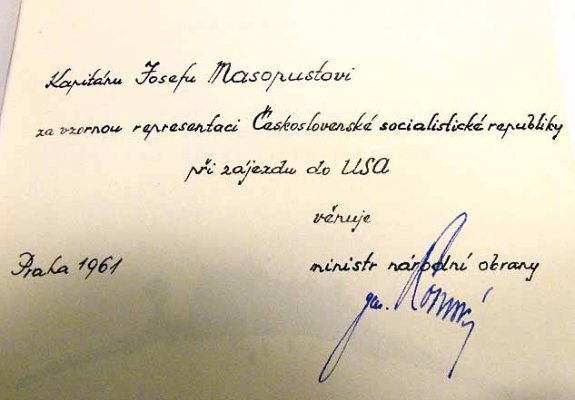 Kapitánu Josefu Masopustovi
za vzornou representaci Československé socialistické republiky
při zájezdu do USA
věnuje
Praha 1961 ministr národní obrany
gen.